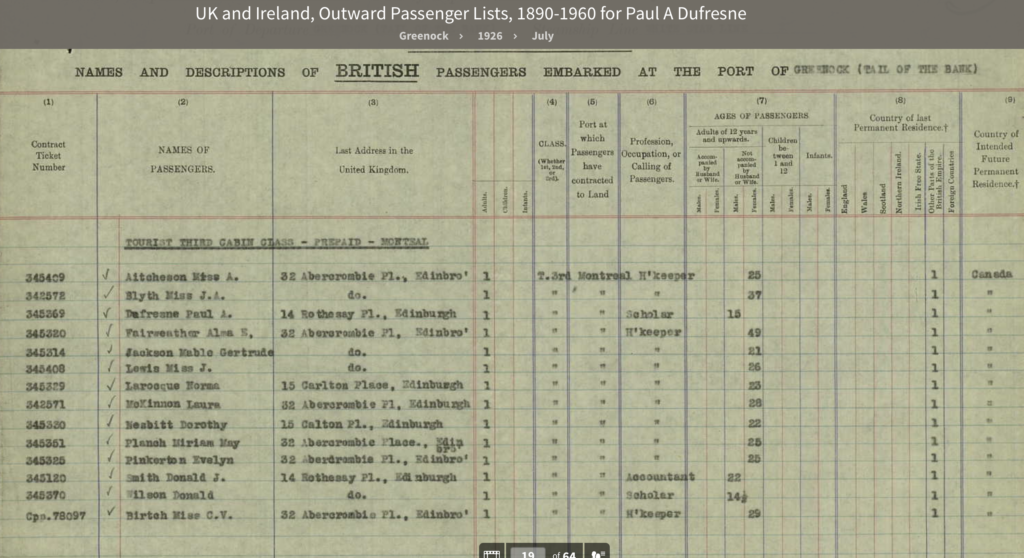 UK and Ireland, Outward Passenger Lists, 1890-1960 for Paul A Dufresne
Greenock › 1926 › July
NAMES AND DESCRIPTIONS OF BRITISH PASSENGERS EMBARKED AT THE PORT OF GREENOCK (TAIL OF THE BANK)
(1) (2) (3) (4) (5) (6) (7) (8) (9)
Contract Ticket Number
NAMES OF PASSENGERS.
Last Address in the United Kingdom.
Adults. Children. Infants.
CLASS. (Whether 1st, 2nd, or 3rd).
Port at which Passengers have contracted to Land
Profession, Occupation, or Calling of Passengers.
AGES OF PASSENGERS
Adults of 12 years and upwards.
Accompanied by Husband or Wife.
Not accompanied by Husband or Wife.
Children between 1 and 12
Infants.
Males. Females. Males. Females. Males. Females. Males. Females.
Country of last Permanent Residence.†
England Wales Scotland Northern Ireland. Irish Free State. Other Parts of the British Empire. Foreign Countries
Country of Intended Future Permanent Residence.†
TOURIST THIRD CABIN CLASS - PREPAID - MONTREAL
345409 ✓ Aitcheson Miss A. 32 Abercrombie Pl., Edinbro' 1 T.3rd Montreal H'keeper 25 1 Canada
342572 ✓ Blyth Miss J.A. do. 1 " " " 37 1 "
345369 ✓ Dufresne Paul A. 14 Rothesay Pl., Edinburgh 1 " " Scholar 15 1 "
345320 ✓ Fairweather Alma E, 32 Abercrombie Pl, Edinbro' 1 " " H'keeper 49 1 "
345314 ✓ Jackson Mable Gertrude do. 1 " " " 21 1 "
345408 ✓ Lewis Miss J. do. 1 " " " 26 1 "
345329 ✓ Larocque Norma 15 Carlton Place, Edinburgh 1 " " " 23 1 "
342571 ✓ McKinnon Laura 32 Abercrombie Pl, Edinburgh 1 " " " 28 1 "
345330 ✓ Nesbitt Dorothy 15 Calton Pl., Edinburgh 1 " " " 22 1 "
345351 ✓ Planch Miriam May 32 Abercrombie Place., Edinbro' 1 " " " 25 1 "
345325 ✓ Pinkerton Evelyn 32 Aberdrombie Pl., Edinbro' 1 " " " 25 1 "
345120 ✓ Smith Donald J. 14 Rothesay Pl., Edinburgh 1 " " Accountant 22 1 "
345370 ✓ Wilson Donald do. 1 " " Scholar 14½ 1 "
Cpo.78097 ✓ Birtch Miss C.V. 32 Abercrombie Pl., Edinbro' 1 " " H'keeper 29 1 "
19 of 64